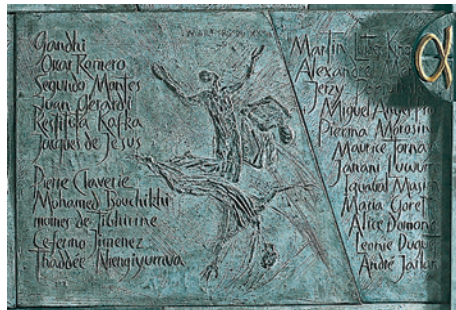 Gandhi
Oscar Romero
Segundo Montes
Juan Gerardi
Restituta Kafka
Jacques de Jesus
Pierre Claverie
Mohamed Bouchikhi
moines de Tibhirine
Ceferino Jimenez
Thaddée Nhengiyumva
Martin Luther King
Alexandre
Jerzy
Miguel
Pierina Morosin
Maurice Tornay
Janani Luwum
Iqubal Masih
Maria Goret
Alice Domon
Leonie Duquet
André Jarlan